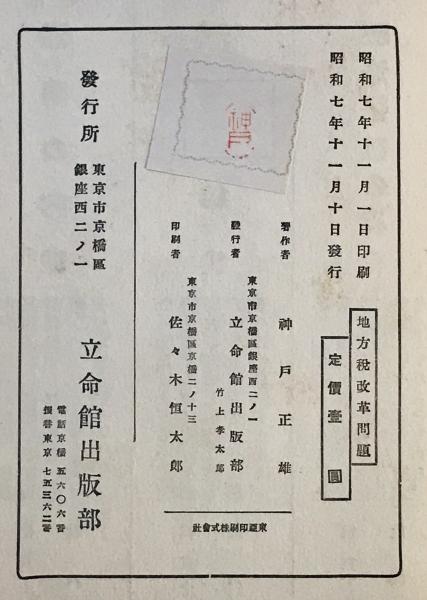 昭和七年十一月一日印刷
昭和七年十一月十日發行
地方稅改革問題
定價壹圓
神戶
著作者 神戶正雄
東京市京橋區銀座西二ノ一
發行者 立命館出版部
竹上孝太郎
東京市京橋區京橋二ノ十三
印刷者 佐々木恒太郎
東亞印刷株式會社
發行所
東京市京橋區
銀座西二ノ一
立命館出版部
電話京橋五六〇六番
振替東京七五三六二番